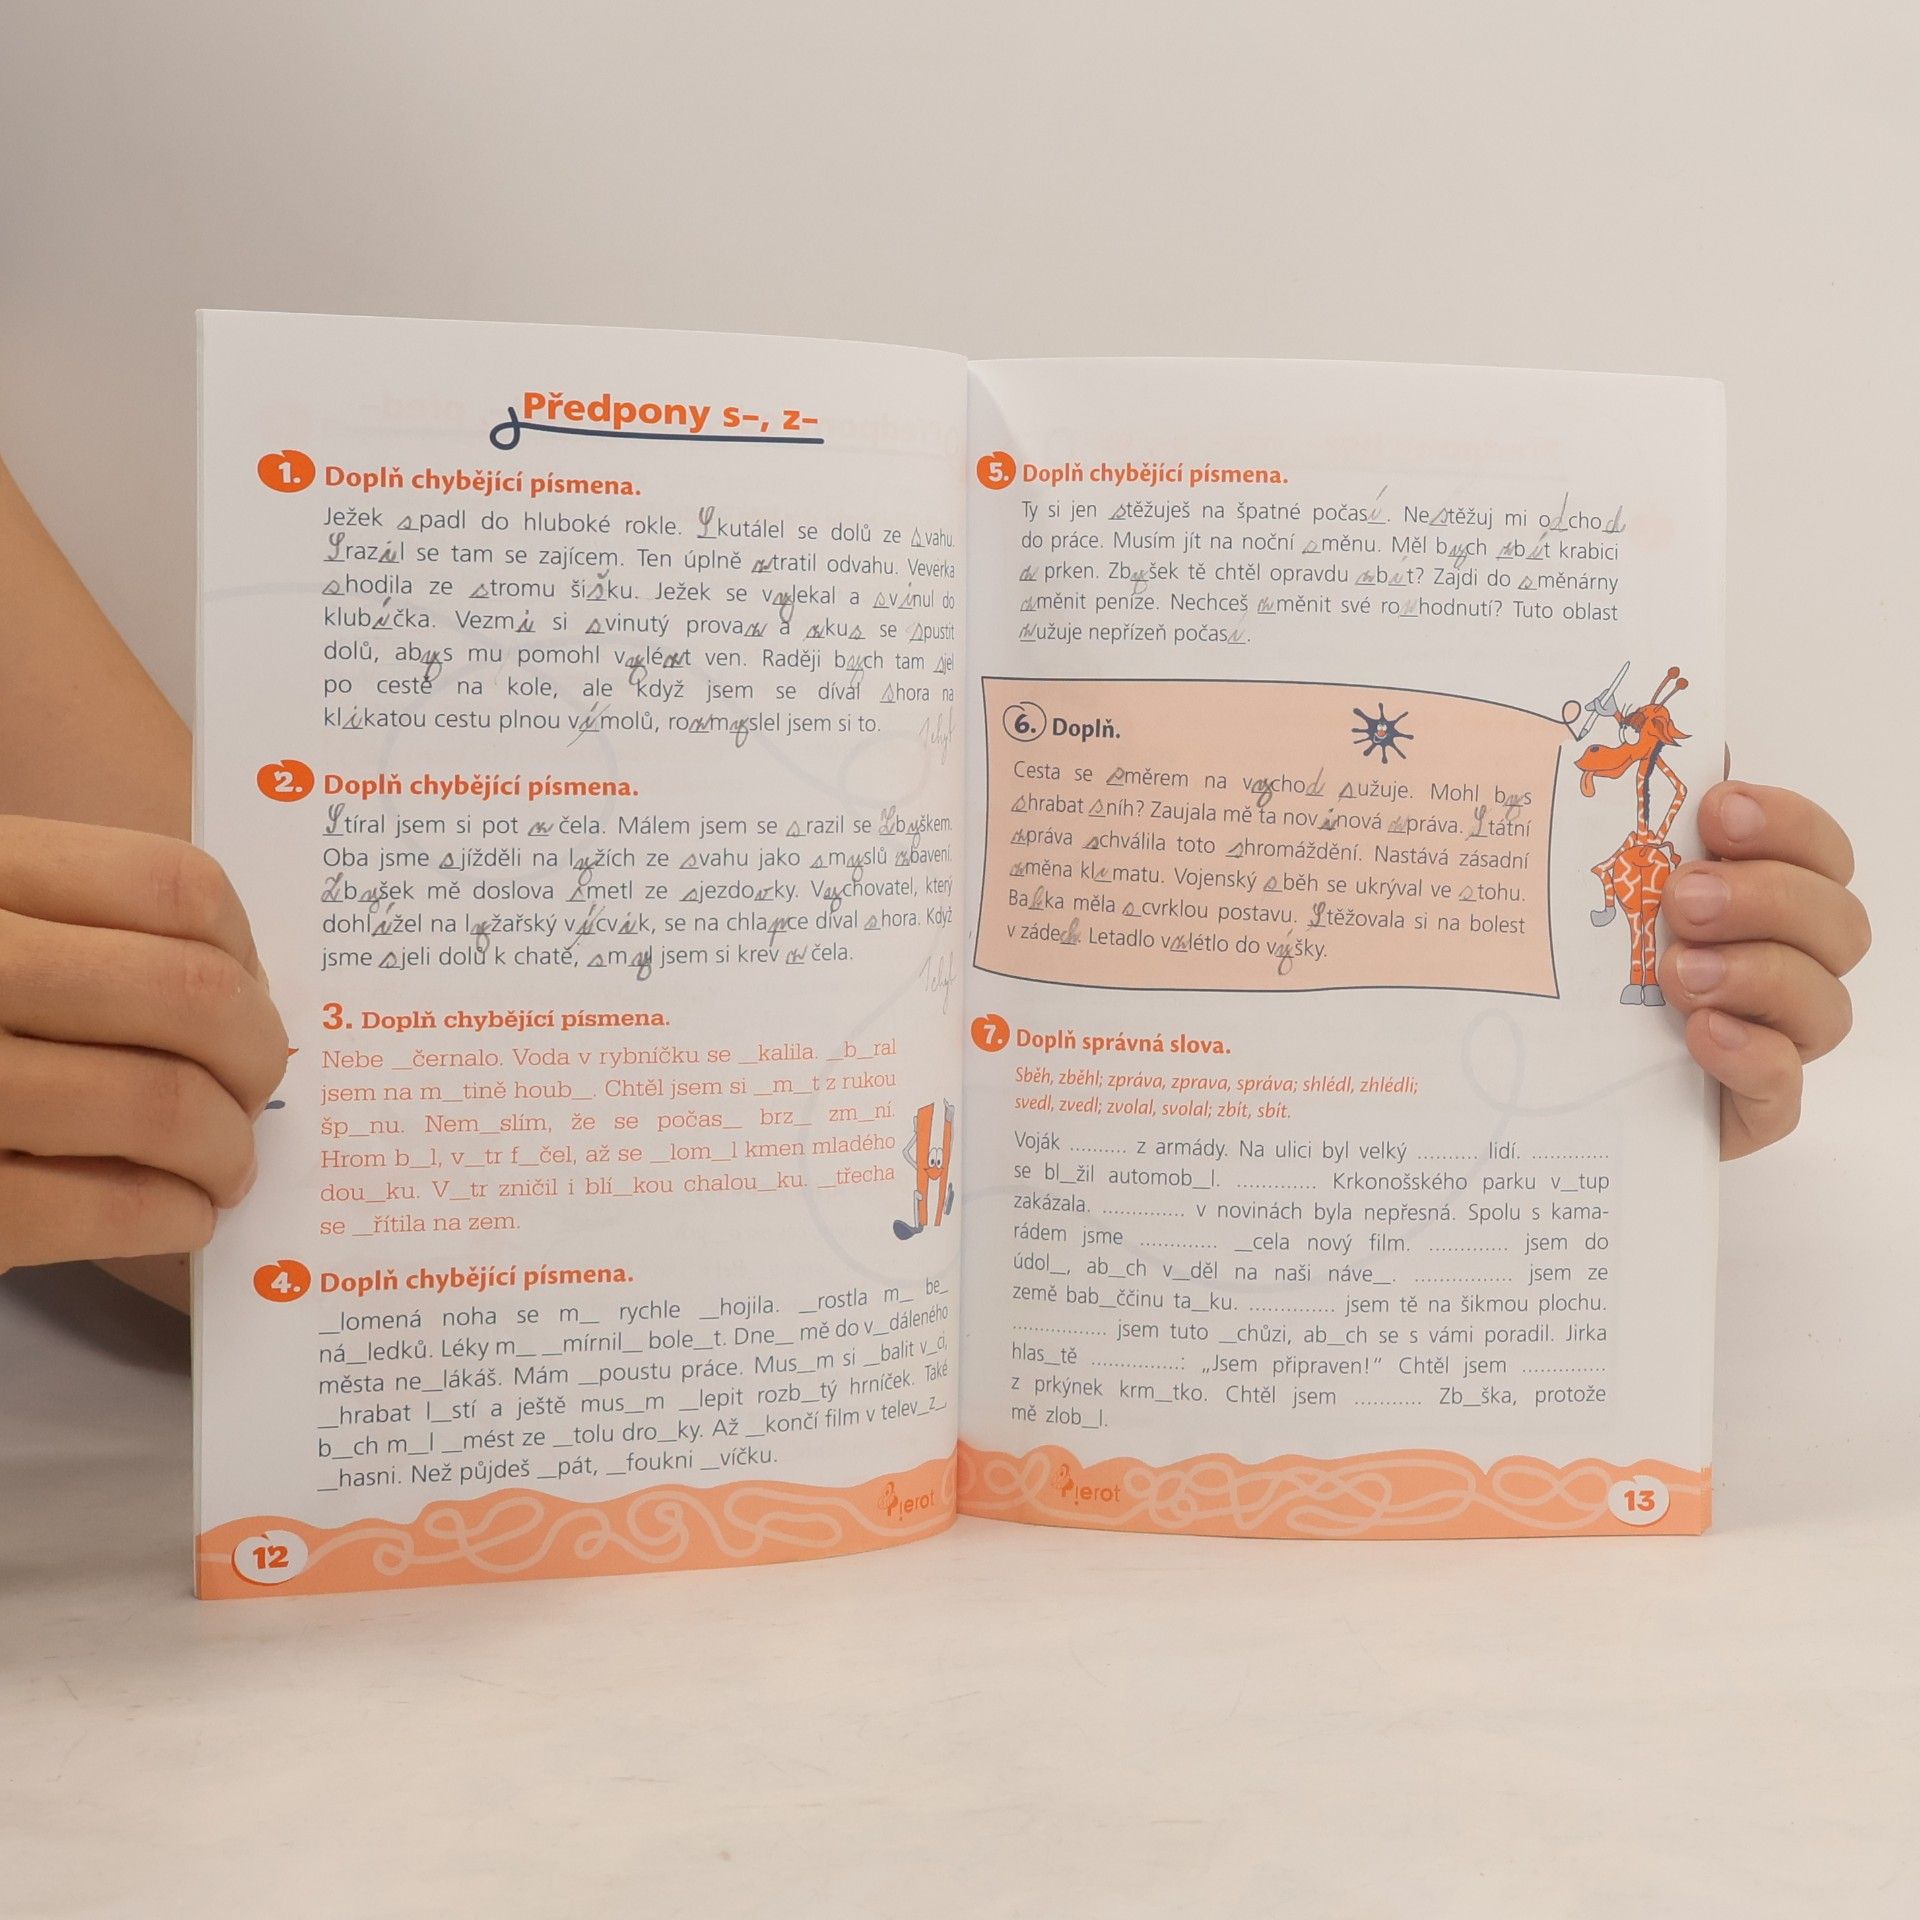 Předpony s–, z–
1. Doplň chybějící písmena.
Ježek spadl do hluboké rokle. Skutálel se dolů ze svahu.
Srazil se tam se zajícem. Ten úplně ztratil odvahu. Veverka
shodila ze stromu šišku. Ježek se vylekal a svinul do
klubíčka. Vezmi si svinutý provaz a zkus se spustit
dolů, abys mu pomohl vylézt ven. Raději bych tam sjel
po cestě na kole, ale když jsem se díval shora na
klikatou cestu plnou výmolů, rozmyslel jsem si to.
1 chyb
2. Doplň chybějící písmena.
Stíral jsem si pot z čela. Málem jsem se srazil se Zbyškem.
Oba jsme sjížděli na lyžích ze svahu jako smyslů zbavení.
Zbyšek mě doslova smetl ze sjezdovky. Vychovatel, který
dohlížel na lyžařský výcvik, se na chlapce díval shora. Když
jsme sjeli dolů k chatě, smyl jsem si krev z čela.
1 chyb
3. Doplň chybějící písmena.
Nebe _černalo. Voda v rybníčku se _kalila. _b_ral
jsem na m_tině houb_. Chtěl jsem si _m_t z rukou
šp_nu. Nem_slím, že se počas_ brz_ zm_ní.
Hrom b_l, v_tr f_čel, až se _lom_l kmen mladého
dou_ku. V_tr zničil i blí_kou chalou_ku. _třecha
se _řítila na zem.
4. Doplň chybějící písmena.
_lomená noha se m_ rychle _hojila. _rostla m_ be_
ná_ledků. Léky m_ _mírnil_ bole_t. Dne_ mě do v_dáleného
města ne_lákáš. Mám _poustu práce. Mus_m si _balit v_ci,
_hrabat l_stí a ještě mus_m _lepit rozb_tý hrníček. Také
b_ch m_l _mést ze _tolu dro_ky. Až _končí film v telev_z_,
_hasni. Než půjdeš _pát, _foukni _víčku.
Pierot
12
5. Doplň chybějící písmena.
Ty si jen stěžuješ na špatné počasí. Nestěžuj mi odchod
do práce. Musím jít na noční směnu. Měl bych zbít krabici
z prken. Zbyšek tě chtěl opravdu zbít? Zajdi do směnárny
změnit peníze. Nechceš změnit své rozhodnutí? Tuto oblast
zužuje nepřízeň počasí.
6. Doplň.
Cesta se směrem na východ sužuje. Mohl bys
shrabat sníh? Zaujala mě ta novinová zpráva. Státní
zpráva schválila toto shromáždění. Nastává zásadní
změna klimatu. Vojenský sběh se ukrýval ve stohu.
Babka měla scvrklou postavu. Stěžovala si na bolest
v zádech. Letadlo vzlétlo do výšky.
7. Doplň správná slova.
Sběh, zběhl; zpráva, zprava, správa; shlédl, zhlédli;
svedl, zvedl; zvolal, svolal; zbít, sbít.
Voják .......... z armády. Na ulici byl velký .......... lidí. .............
se bl_žil automob_l. ............. Krkonošského parku v_tup
zakázala. ............. v novinách byla nepřesná. Spolu s kama-
rádem jsme ............ _cela nový film. ............. jsem do
údol_, ab_ch v_děl na naši náve_. ................ jsem ze
země bab_ččinu ta_ku. .............. jsem tě na šikmou plochu.
............... jsem tuto _chůzi, ab_ch se s vámi poradil. Jirka
hlas_tě ...............: „Jsem připraven!“ Chtěl jsem ..............
z prkýnek krm_tko. Chtěl jsem ........... Zb_ška, protože
mě zlob_l.
Pierot
13